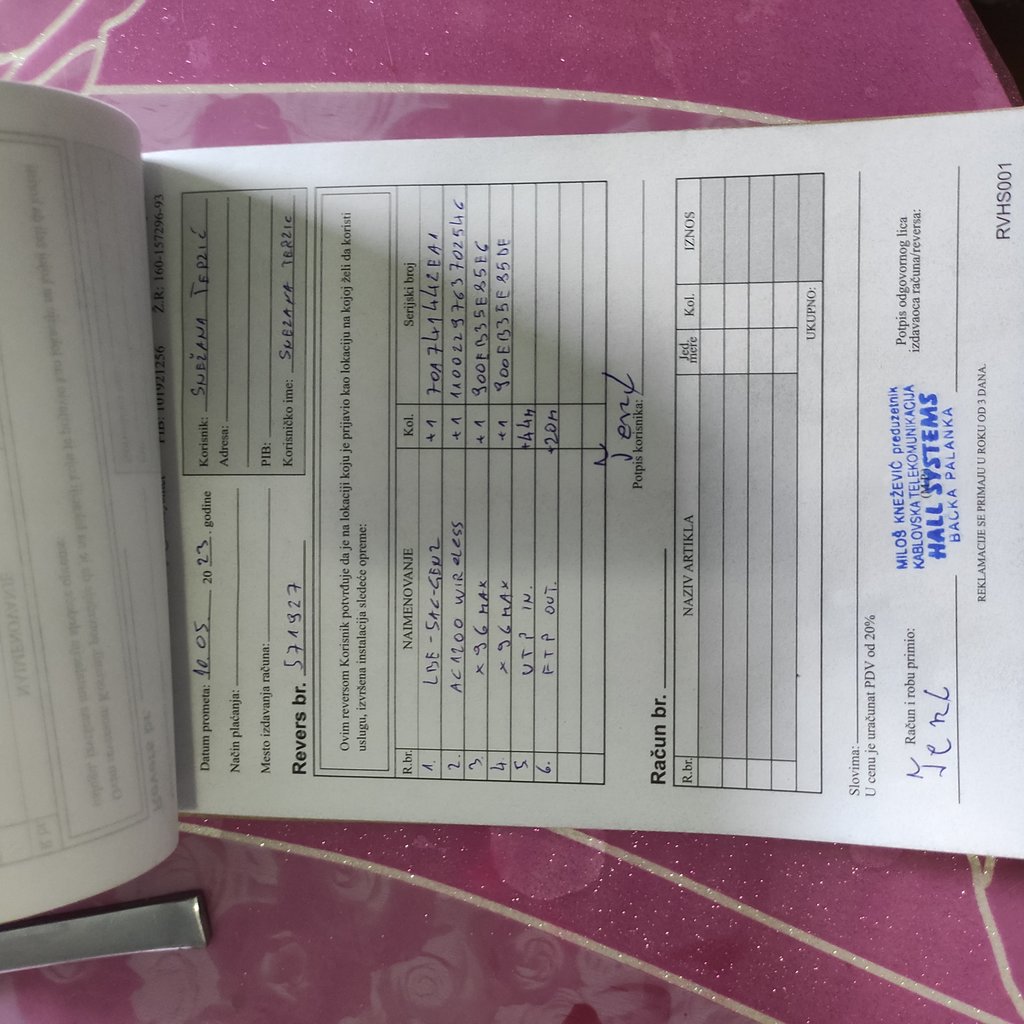 PIB: 101921256 Ž.R: 160-157296-93
Datum prometa: 10.05 2023. godine
Način plaćanja:
Mesto izdavanja računa:
Revers br. 571927
Korisnik: SNEŽANA TERZIĆ
Adresa:
PIB:
Korisničko ime: SNEZANA TERZIC
Ovim reversom Korisnik potvrđuje da je na lokaciji koju je prijavio kao lokaciju na kojoj želi da koristi
uslugu, izvršena instalacija sledeće opreme:
R.br. NAIMENOVANJE Kol. Serijski broj
1. LBE-5AC-GEN2 +1 701741442EA1
2. AC1200 WIRELESS +1 1100229763702546
3. X96 MAX +1 900EB35E85E6
4. X96 MAX +1 900EB35E85DE
5. UTP IN. +44m
6. FTP OUT. +20m
Potpis korisnika:
Račun br.
R.br. NAZIV ARTIKLA Jed. mere Kol. IZNOS
UKUPNO:
Slovima:
U cenu je uračunat PDV od 20%
Račun i robu primio:
(M.P.)
Potpis odgovornog lica
izdavaoca računa/reversa:
MILOŠ KNEŽEVIĆ preduzetnik
KABLOVSKA TELEKOMUNIKACIJA
HALL SYSTEMS
BAČKA PALANKA
REKLAMACIJE SE PRIMAJU U ROKU OD 3 DANA.
RVHS001